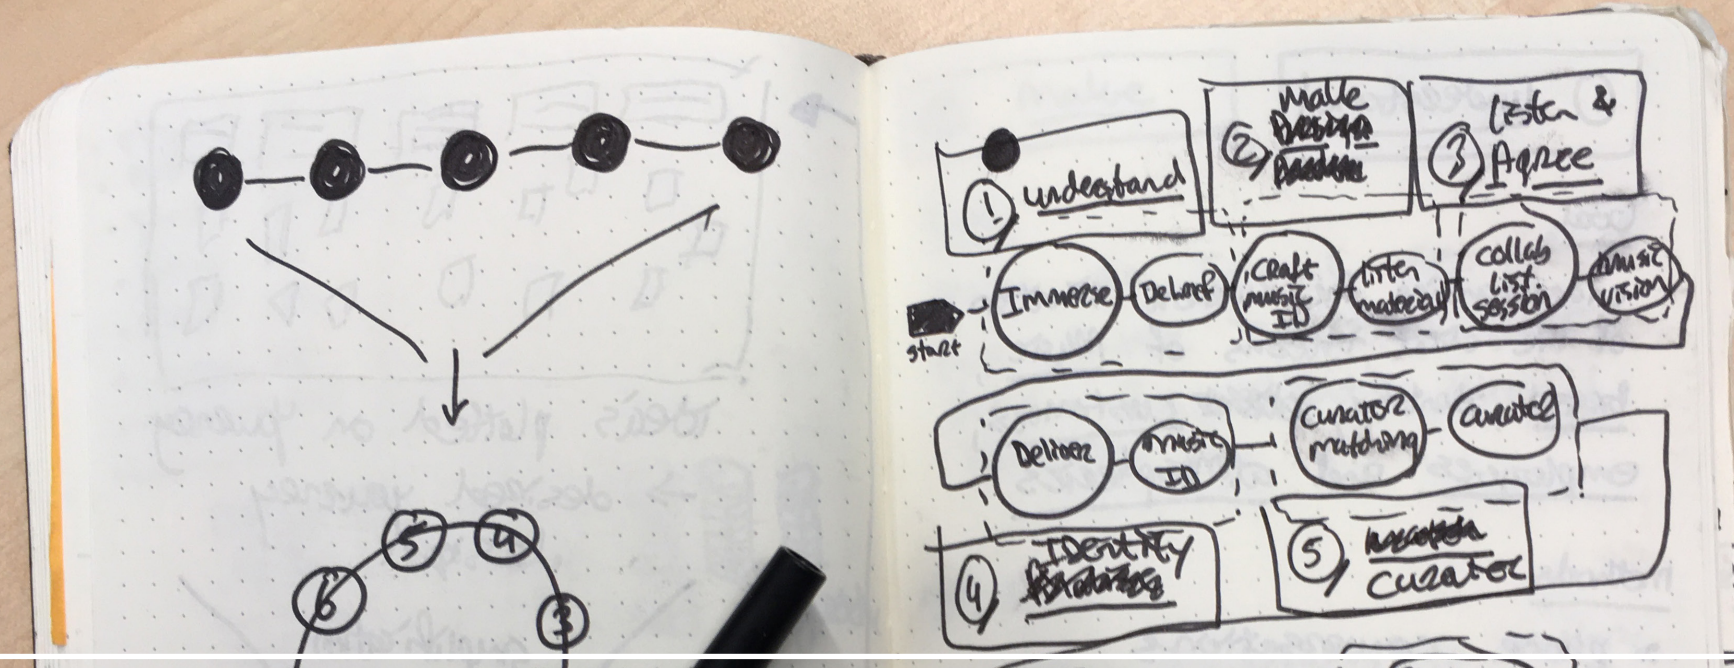 5
4
6
3
1
understand
2
Make
3
Listen &
Agree
start
Immerse
Debrief
craft
music
ID
listen
material
collab
list.
session
music
vision
Deliver
music
ID
curator
matching
curator
4
Identity
5
curator